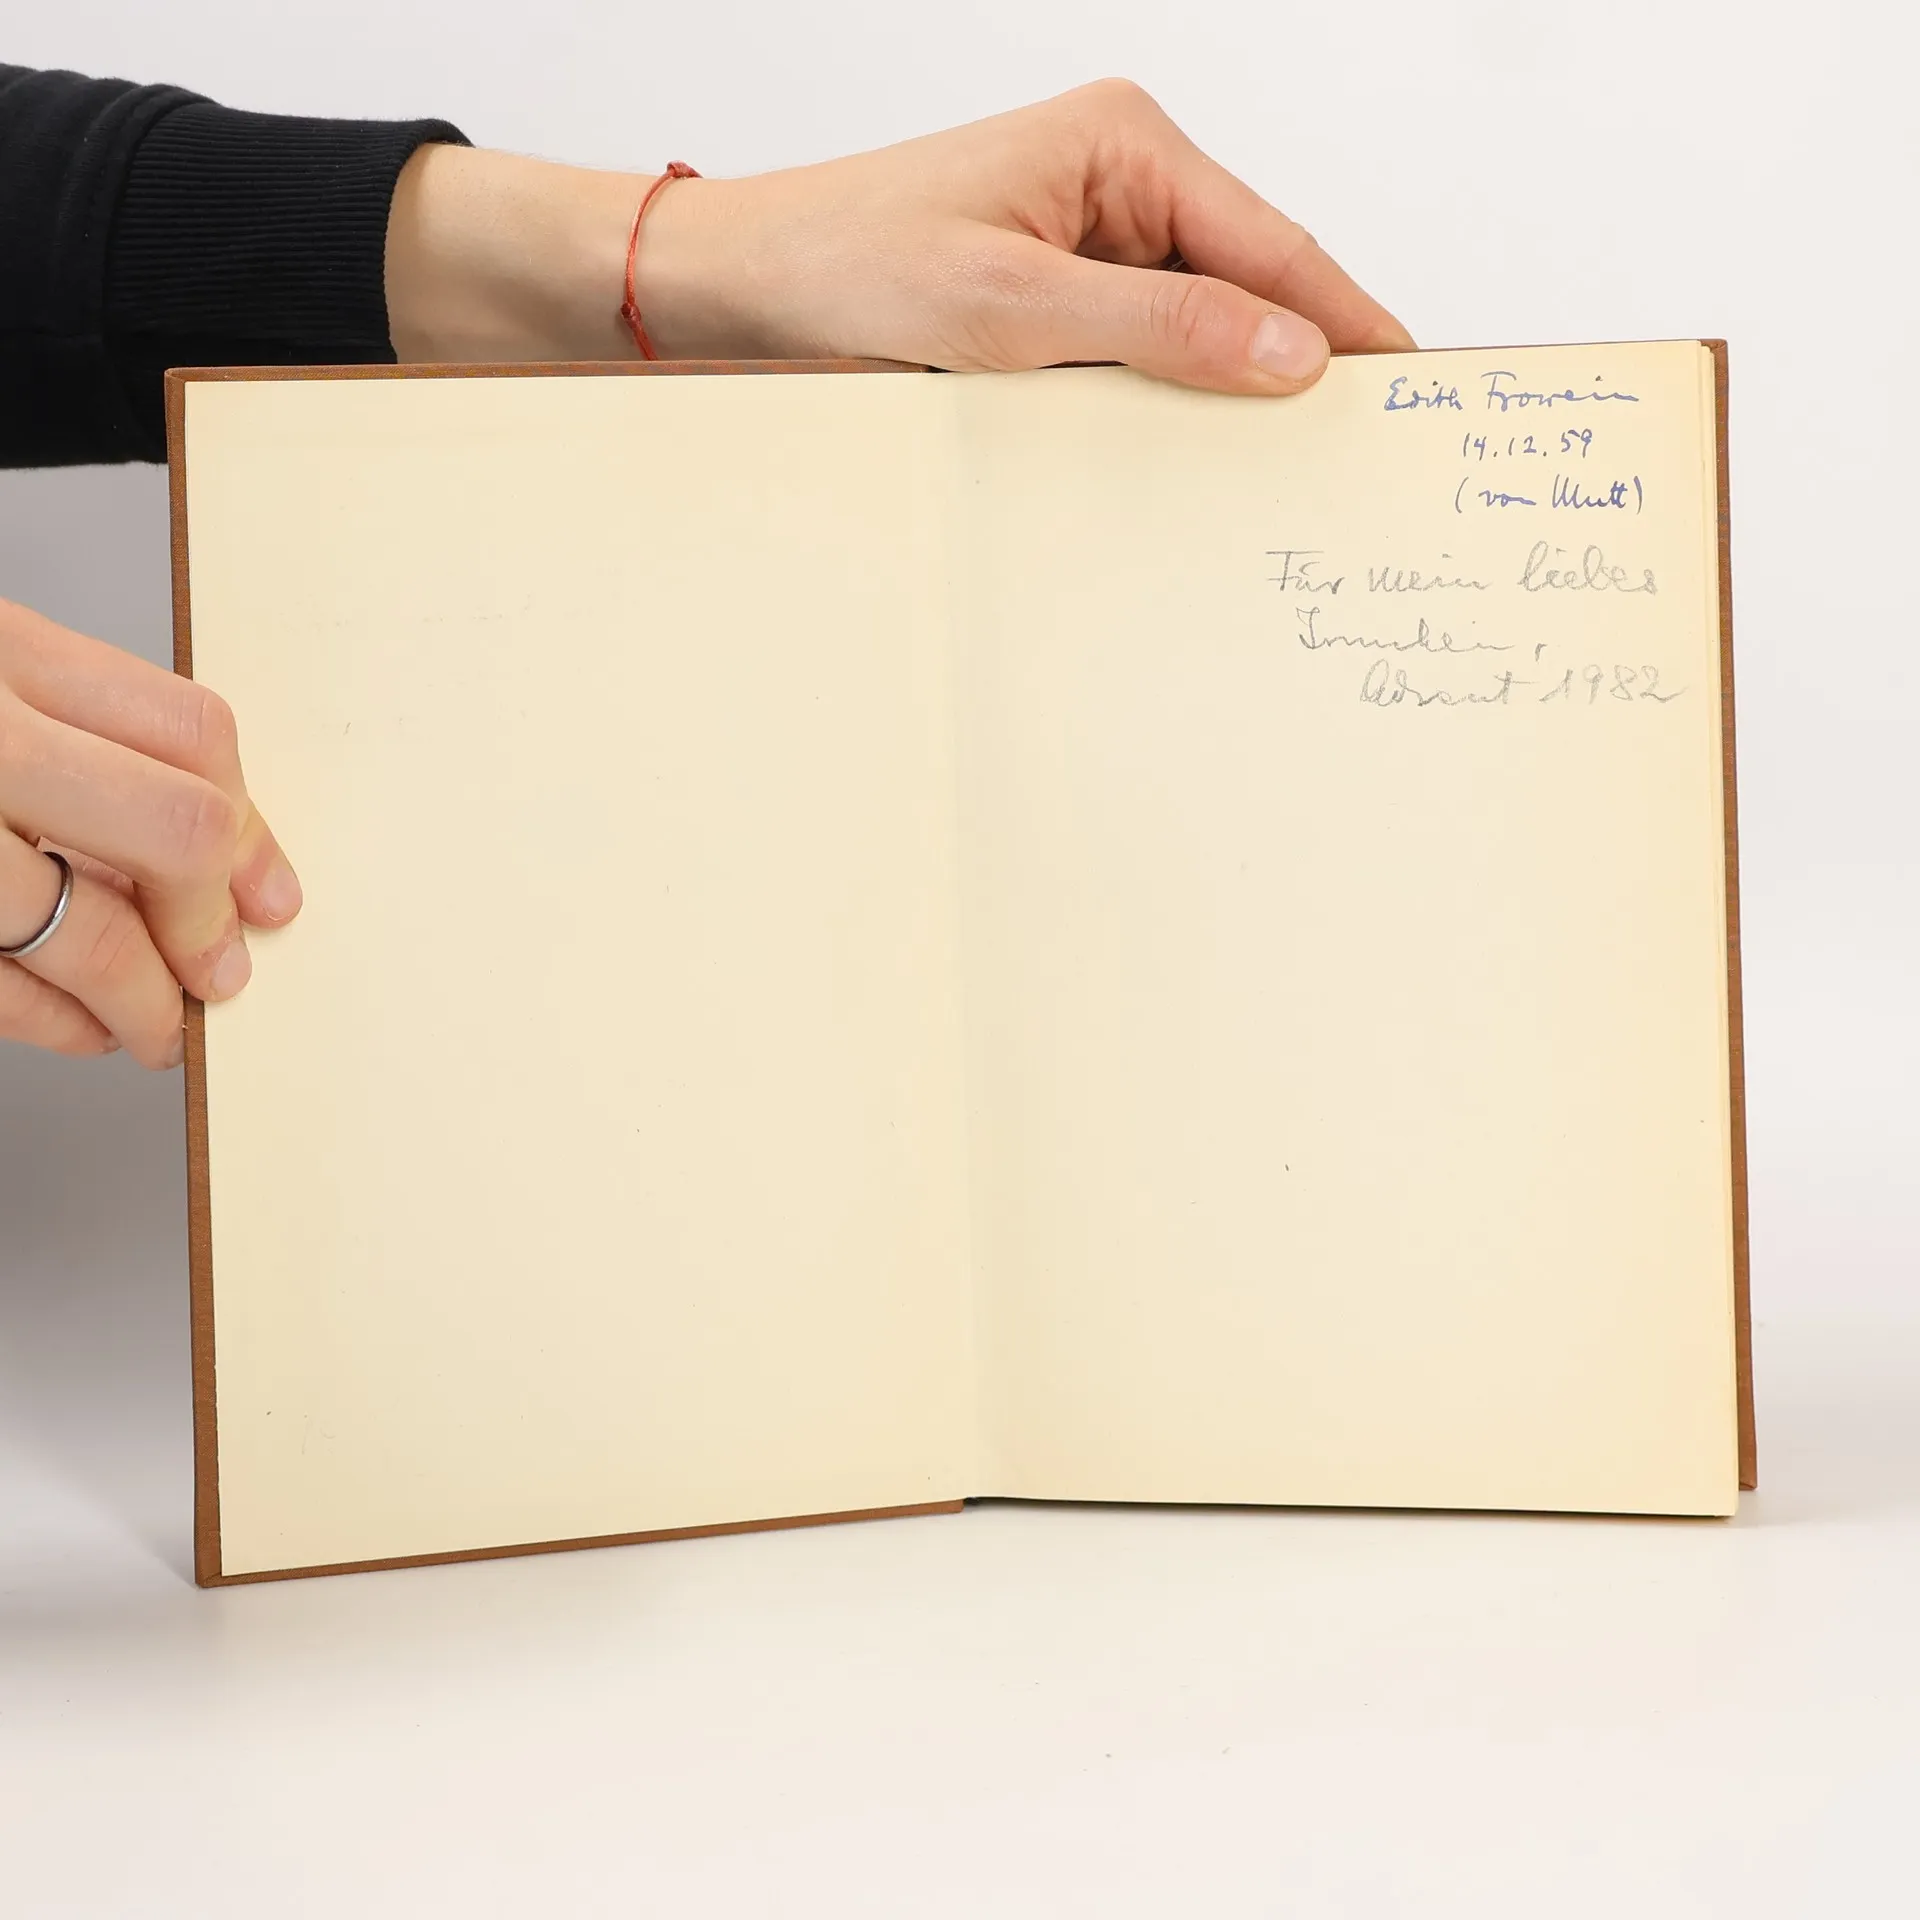 Edith Frowein
14.12.59
(von Mutt)
Für mein liebes
Advent 1982